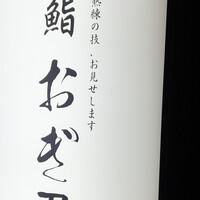 熟練の技、お見せします
鮨 おぎ